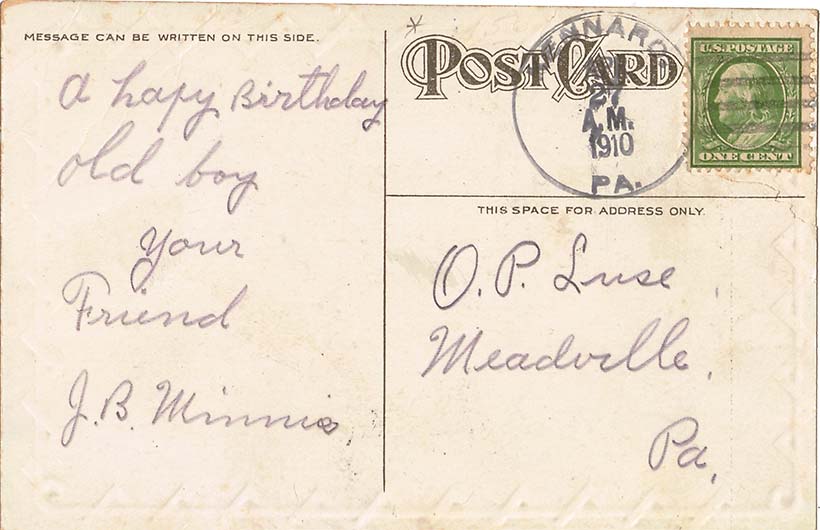 MESSAGE CAN BE WRITTEN ON THIS SIDE.
A hapy Birthday
old boy
your
Friend
J.B. Minnis
POST CARD
27
A.M.
1910
PA.
U.S. POSTAGE
ONE CENT
THIS SPACE FOR ADDRESS ONLY.
O.P. Luse,
Meadville,
Pa,